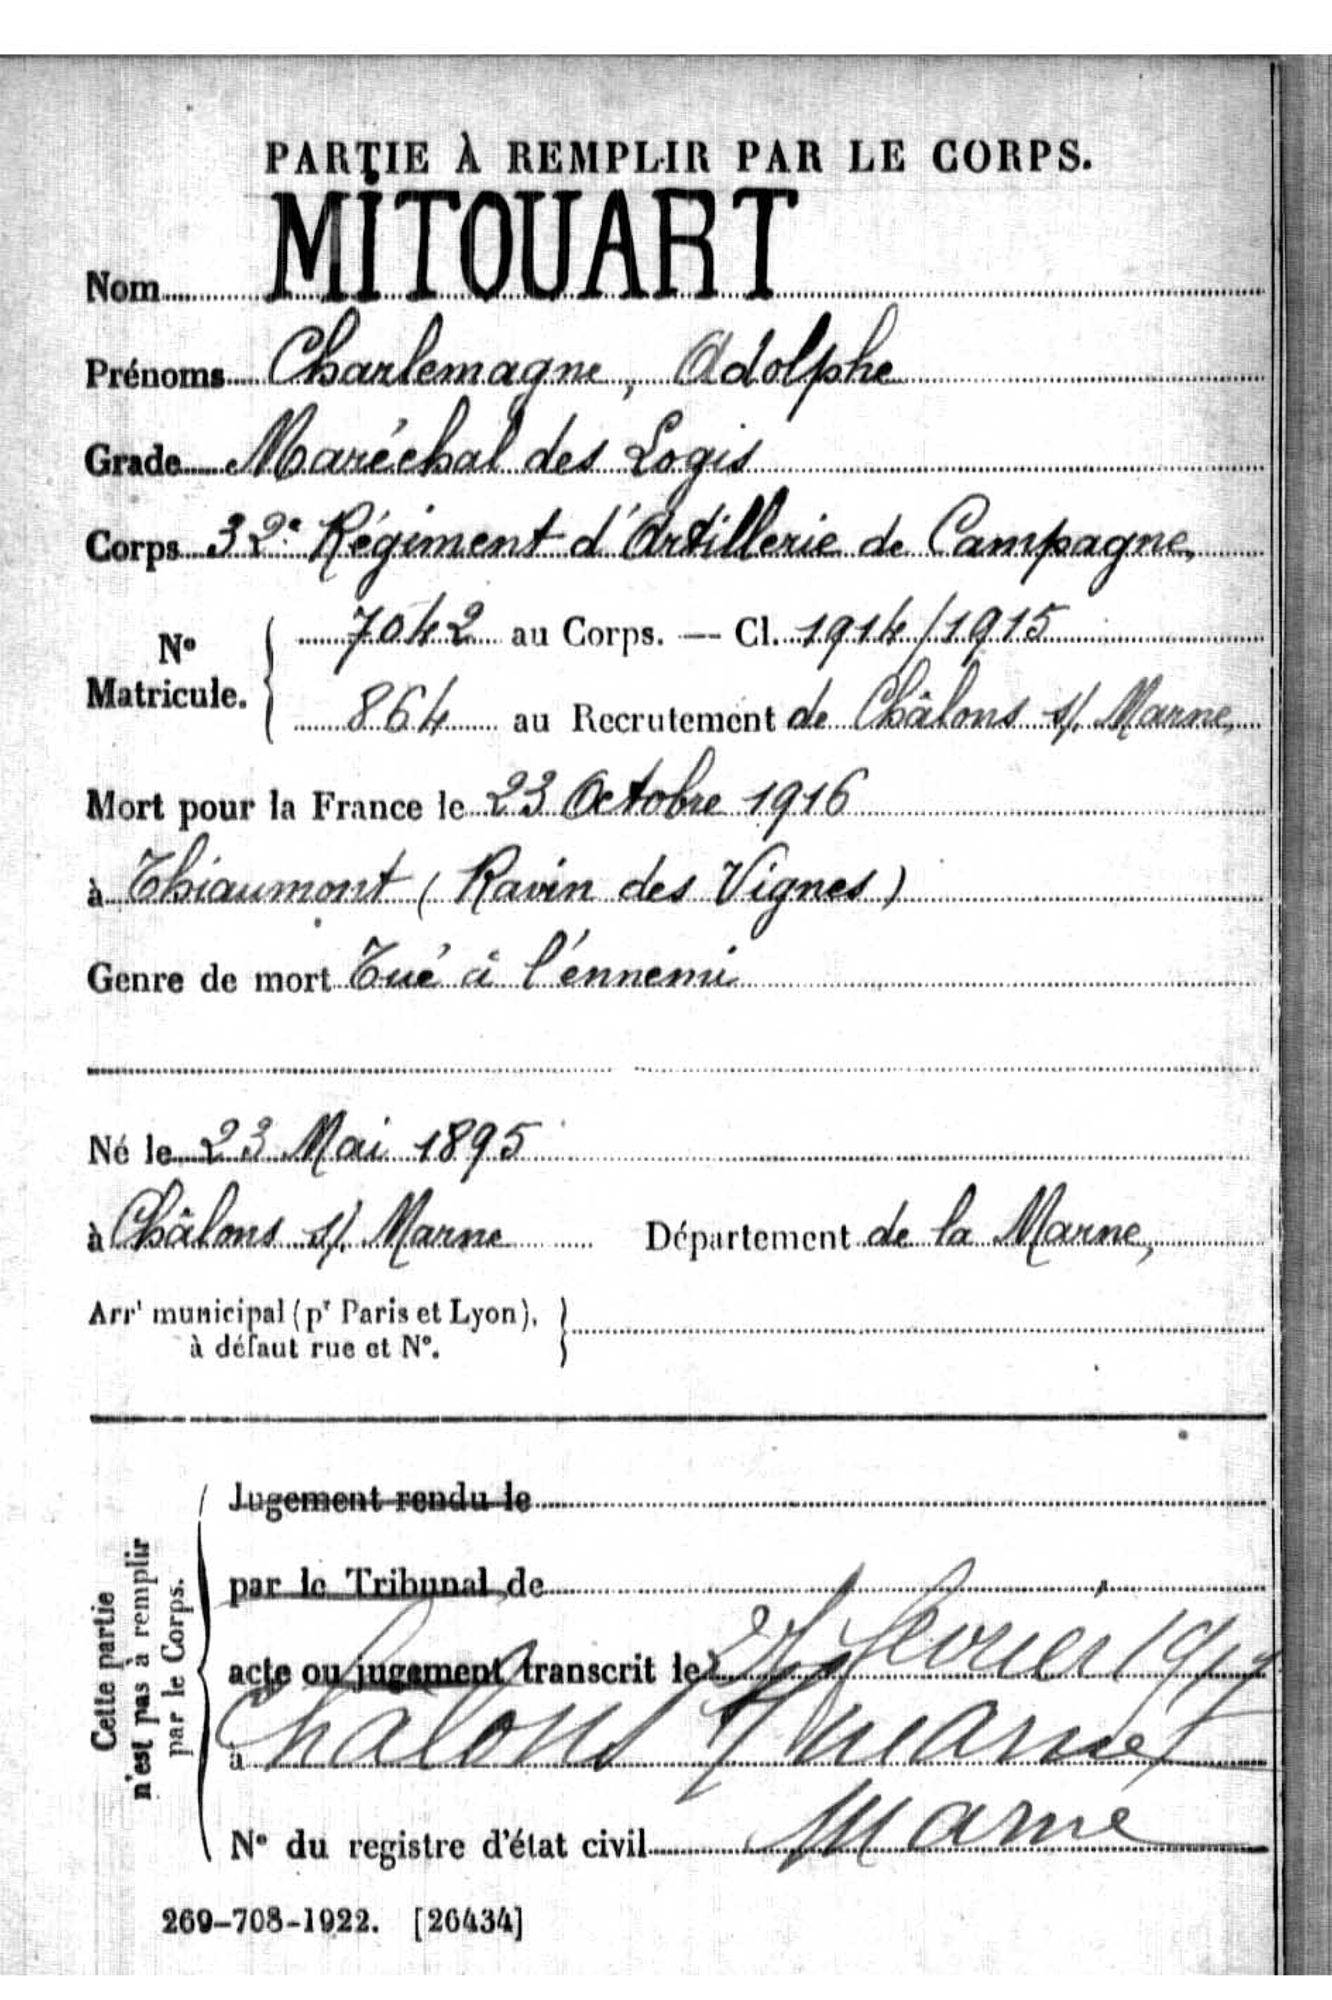 PARTIE À REMPLIR PAR LE CORPS.
Nom MITOUART
Prénoms Charlemagne, Adolphe
Grade Maréchal des Logis
Corps 32e Régiment d'Artillerie de Campagne,
No Matricule. { 7042 au Corps. — Cl. 1914/1915
864 au Recrutement de Châlons s/. Marne,
Mort pour la France le 23 Octobre 1916
à Thiaumont (Ravin des Vignes)
Genre de mort Tué à l'énnemi
Né le 23 Mai 1895
à Châlons s/. Marne Département de la Marne,
Arrt municipal (pr Paris et Lyon), }
à défaut rue et N°.
Cette partie
n'est pas à remplir
par le Corps.
Jugement rendu le
par le Tribunal de
acte ou jugement transcrit le février 1917
à Chalons s/ marne
marne
N° du registre d'état civil
269-708-1922. [26434]